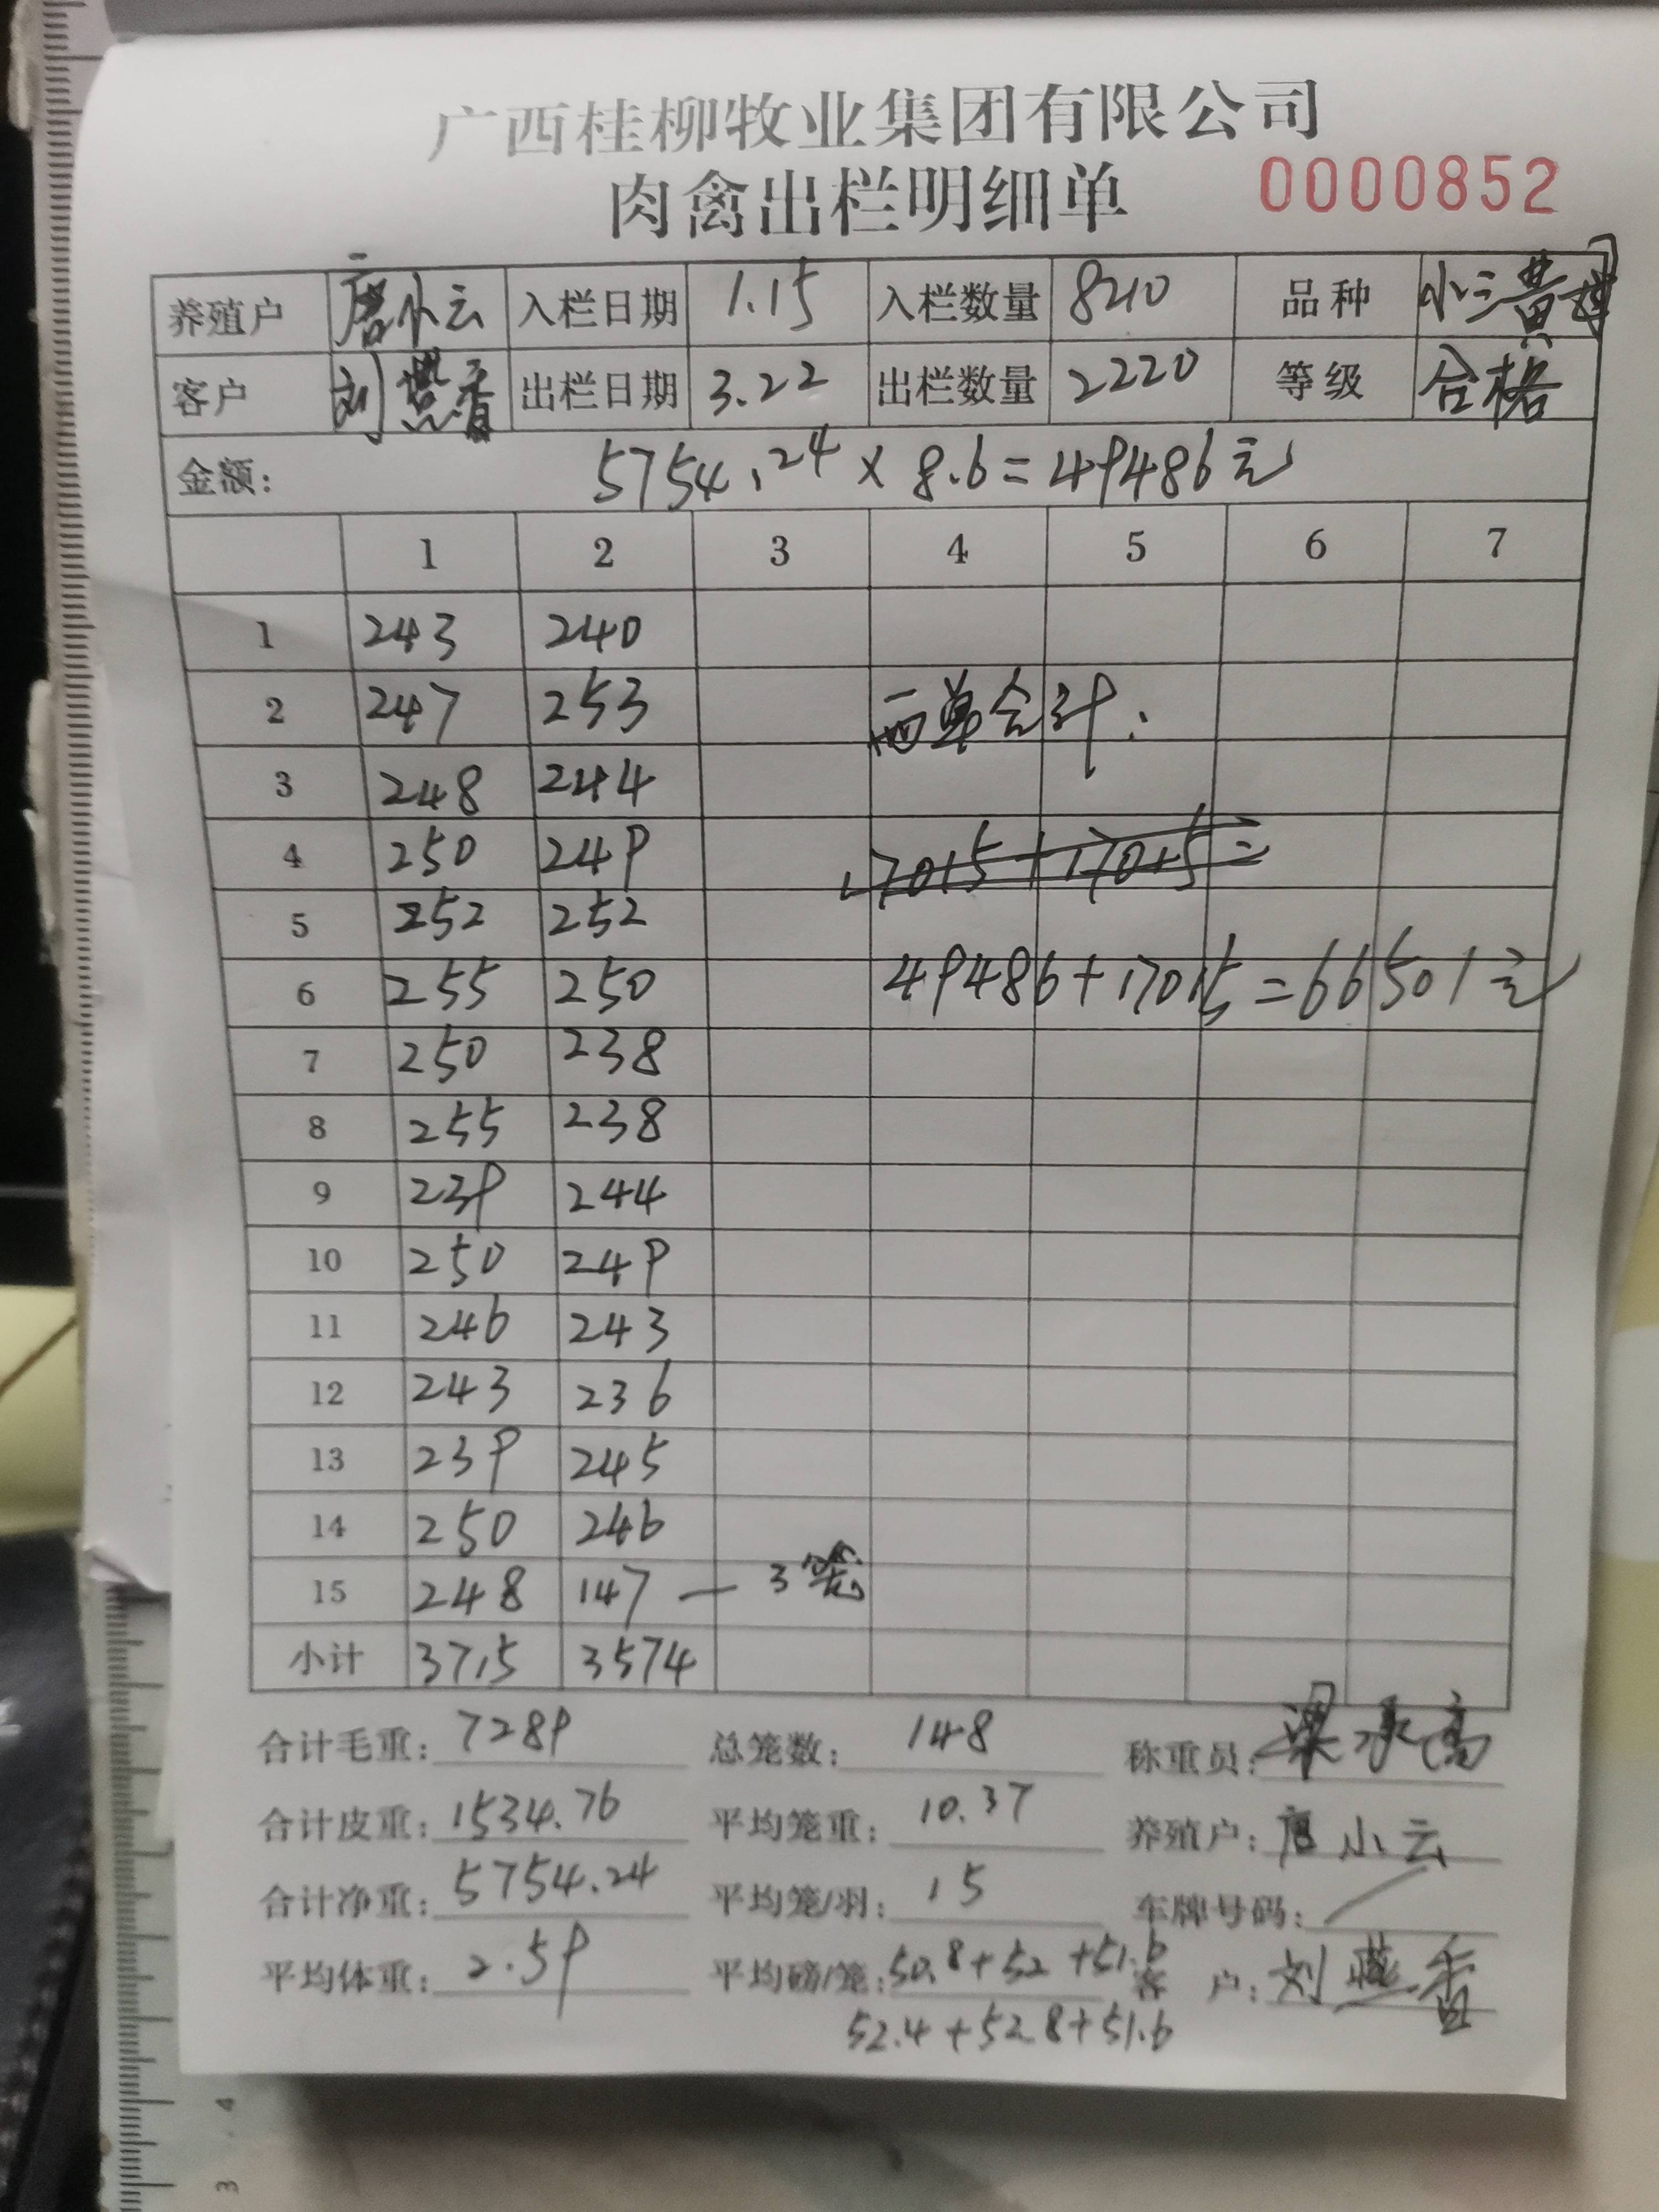 广西桂柳牧业集团有限公司
肉禽出栏明细单 0000852
养殖户 唐小云 入栏日期 1.15 入栏数量 8210 品种 小三黄
客户 刘燕香 出栏日期 3.22 出栏数量 2220 等级 合格
金额: 5754.24 × 8.6=49486元
1 2 3 4 5 6 7
1 243 240
2 247 253 两单合计:
3 248 244
4 250 249 17015+17015=
5 252 252
6 255 250 49486+17015=66501元
7 250 238
8 255 238
9 239 244
10 250 249
11 246 243
12 243 236
13 239 245
14 250 246
15 248 147 — 3笼
小计 3715 3574
合计毛重: 7289 总笼数: 148 称重员: 梁承高
合计皮重: 1534.76 平均笼重: 10.37 养殖户: 唐小云
合计净重: 5754.24 平均笼/羽: 15 车牌号码: /
平均体重: 2.59 平均磅/笼: 50.8+52+51.6 客户: 刘燕香
52.4+52.8+51.6
3 4